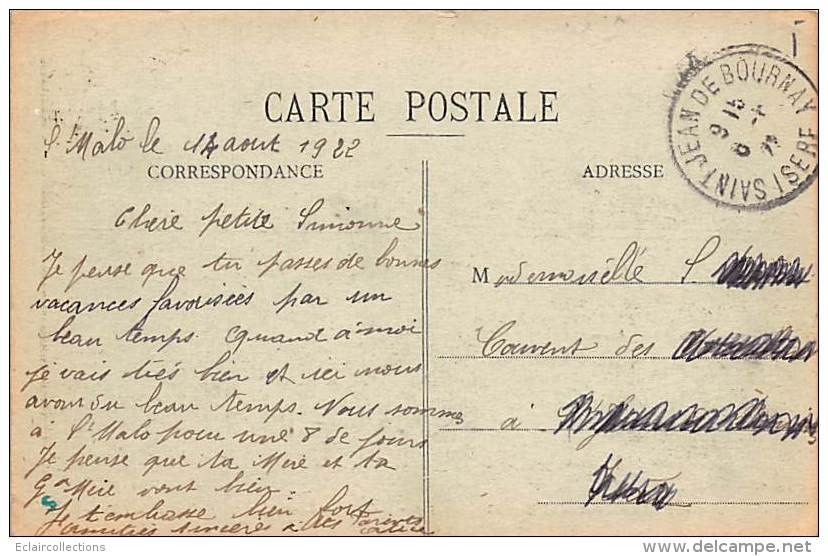 CARTE POSTALE
St Malo le 14 aout 1922
CORRESPONDANCE
Chere petite Simonne
Je pense que tu passes de bonnes
vacances favorisées par un
beau temps. Quand à moi
je vais très bien et ici nous
avons du beau temps. Nous sommes
à St Malo pour une 8 de jours
Je pense que ta Mère et ta
Gd Mère vont bien.
Je t'embrasse bien fort
amitiés sincères à tes parents
ADRESSE
Mademoiselle S
Couvent des
à
SAINT JEAN DE BOURNAY
ISERE
Eclaircollections
delcampe.net